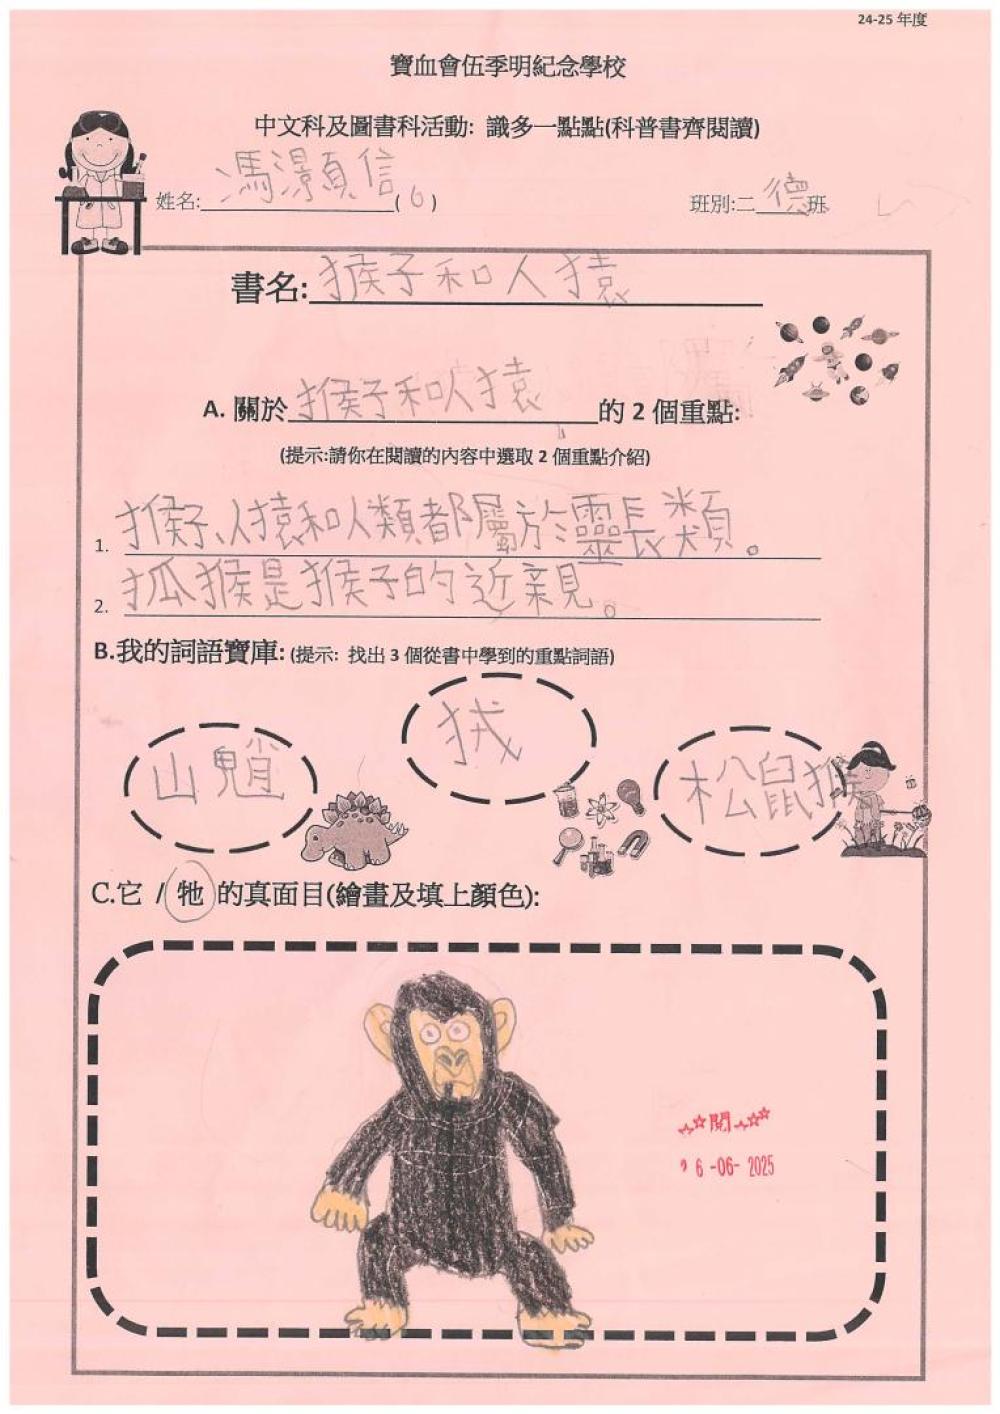 24-25 年度
寶血會伍季明紀念學校
中文科及圖書科活動: 識多一點點(科普書齊閱讀)
姓名: 馮灝信 ( 6 )
班別:二 德 班
書名: 猴子和人猿
A. 關於 猴子和人猿 的 2 個重點:
(提示:請你在閱讀的內容中選取 2 個重點介紹)
1. 猴子、人猿和人類都屬於靈長類。
2. 狐猴是猴子的近親。
B.我的詞語寶庫: (提示: 找出 3 個從書中學到的重點詞語)
狨
山魈
松鼠猴
C.它 / 牠 的真面目(繪畫及填上顏色):
閱
6 -06- 2025